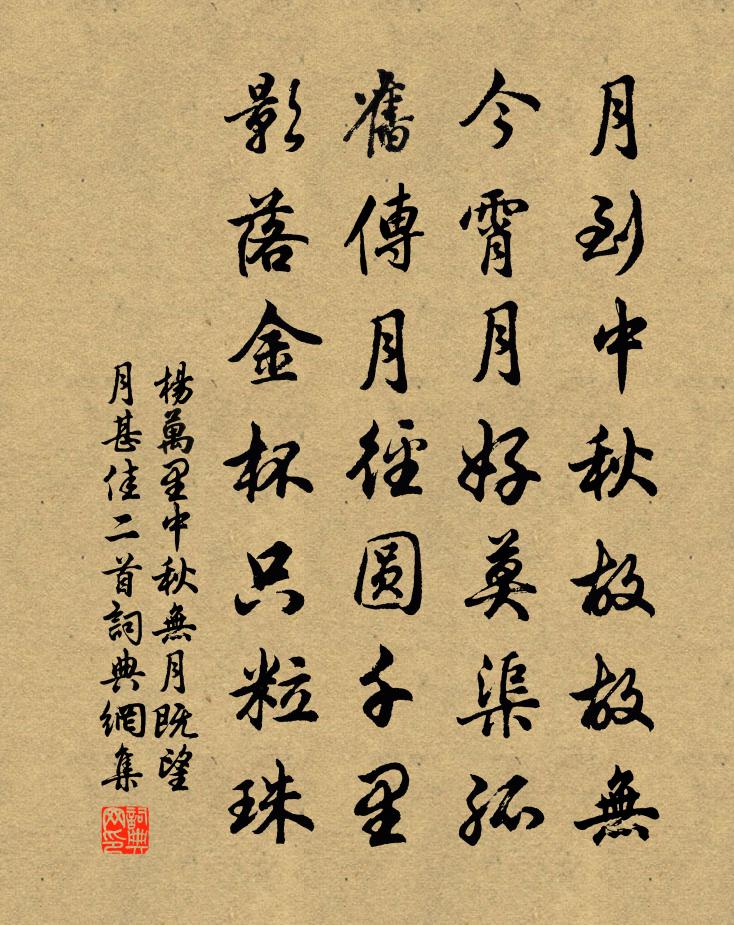 月到中秋故故無
今霄月好莫渠孤
舊傳月徑圆千里
影落金杯只粒珠
楊萬里中秋無月既望
月甚佳二首詞典網集
詞典网印